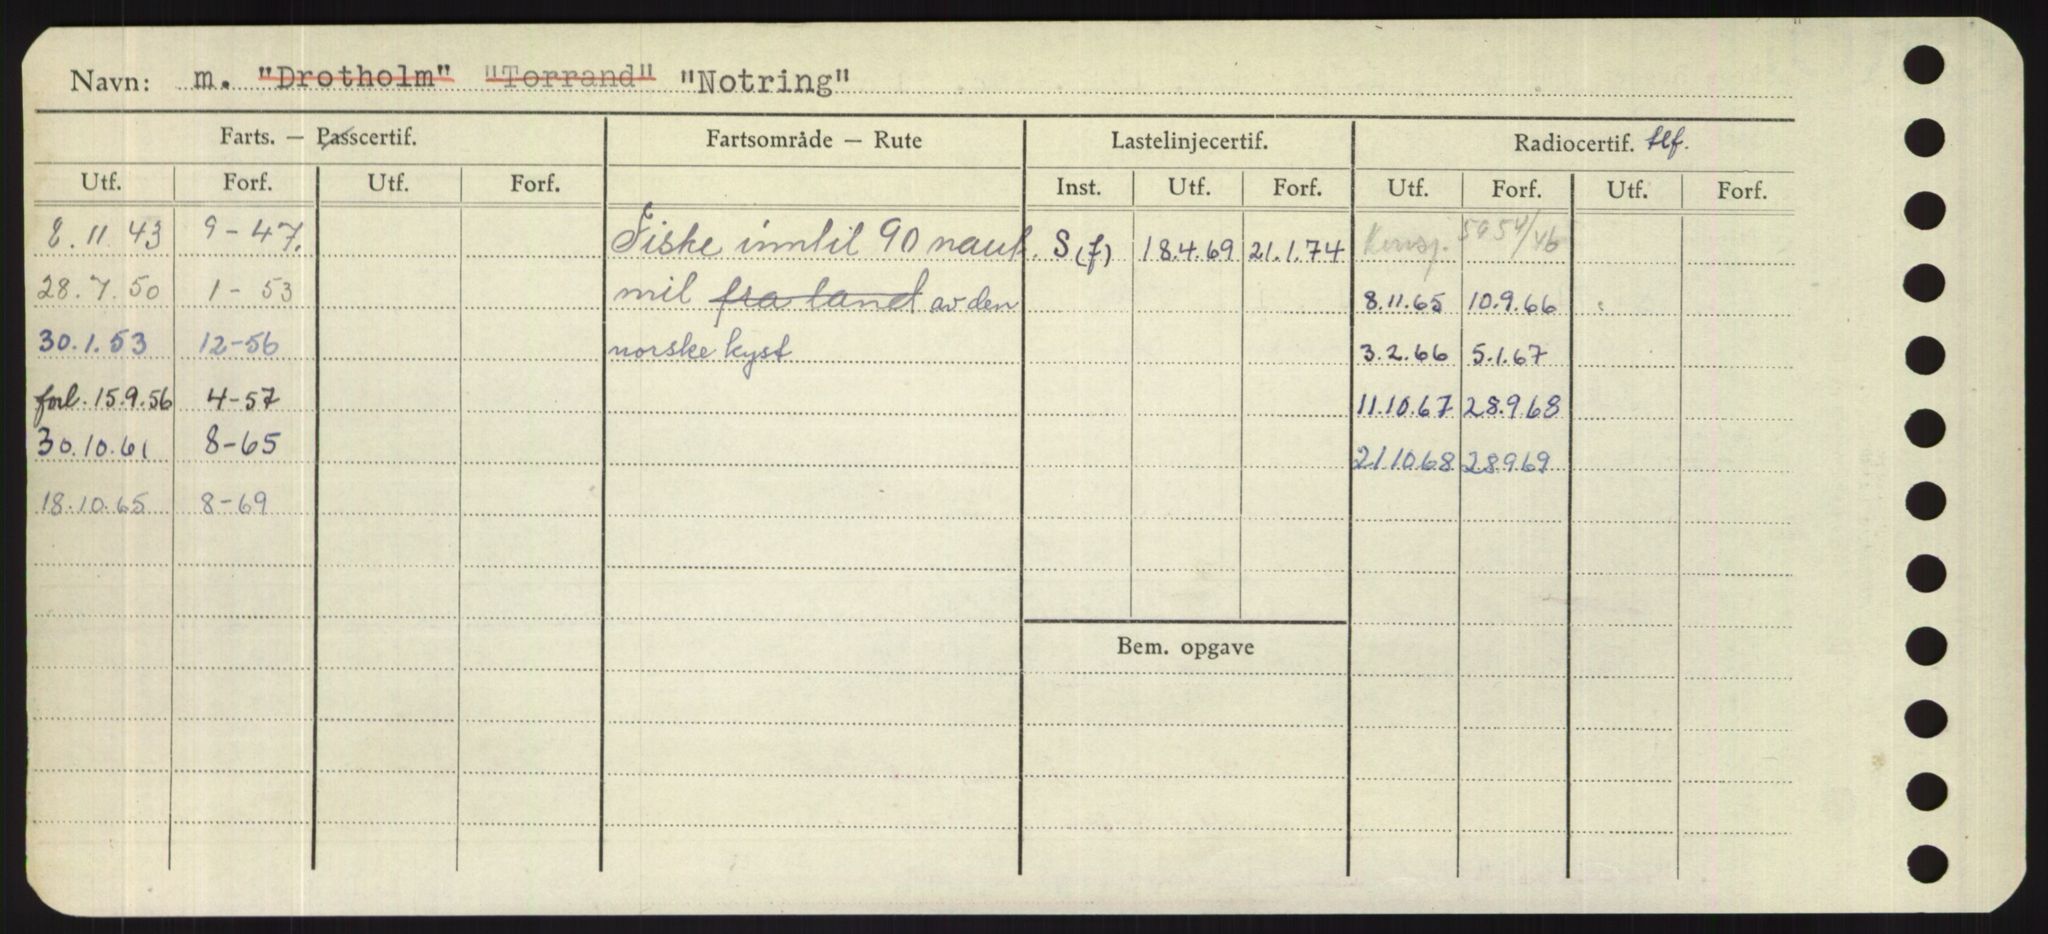 Navn: m. "Drotholm" "Torrand" "Notring"
Farts. — Passcertif. Fartsområde — Rute Lastelinjecertif. Radiocertif. tlf.
Utf. Forf. Utf. Forf. Inst. Utf. Forf. Utf. Forf. Utf. Forf.
8.11.43 9-47. Fiske inntil 90 naut. S(f) 18.4.69 21.1.74 5954/46
28.7.50 1-53 mil fra land av den 8.11.65 10.9.66
30.1.53 12-56 norske kyst 3.2.66 5.1.67
forl. 15.9.56 4-57 11.10.67 28.9.68
30.10.61 8-65 21.10.68 28.9.69
18.10.65 8-69
Bem. opgave